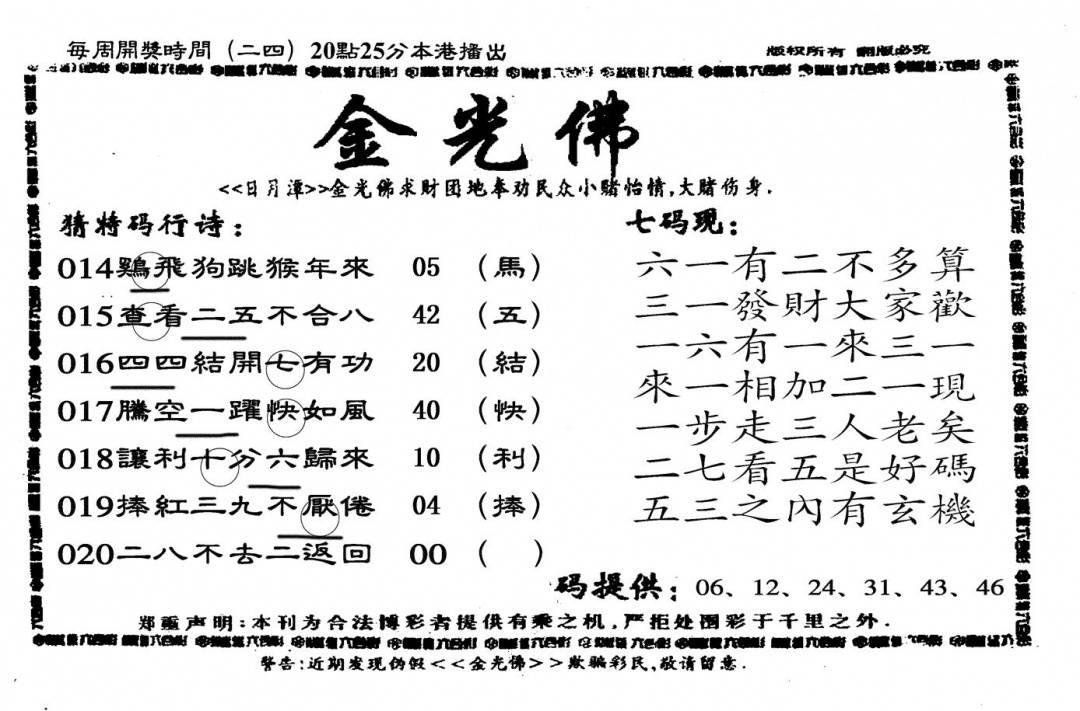 每周開獎時間（二四）20點25分本港播出
版权所有 翻版必究
金光佛
<<日月潭>>金光佛求財团地奉劝民众小赌怡情,大赌伤身.
猜特码行诗：
014鷄飛狗跳猴年來 05 （馬）
015查看二五不合八 42 （五）
016四四結開七有功 20 （結）
017騰空一躍快如風 40 （快）
018讓利十分六歸來 10 （利）
019捧紅三九不厭倦 04 （捧）
020二八不去二返回 00 （ ）
七码現：
六一有二不多算
三一發財大家歡
一六有一來三一
來一相加二一現
一步走三人老矣
二七看五是好碼
五三之內有玄機
码提供：06、12、24、31、43、46
郑重声明:本刊为合法博彩者提供有乘之机,严拒处图彩于千里之外.
警告:近期发现伪假<<金光佛>>欺骗彩民,敬请留意.